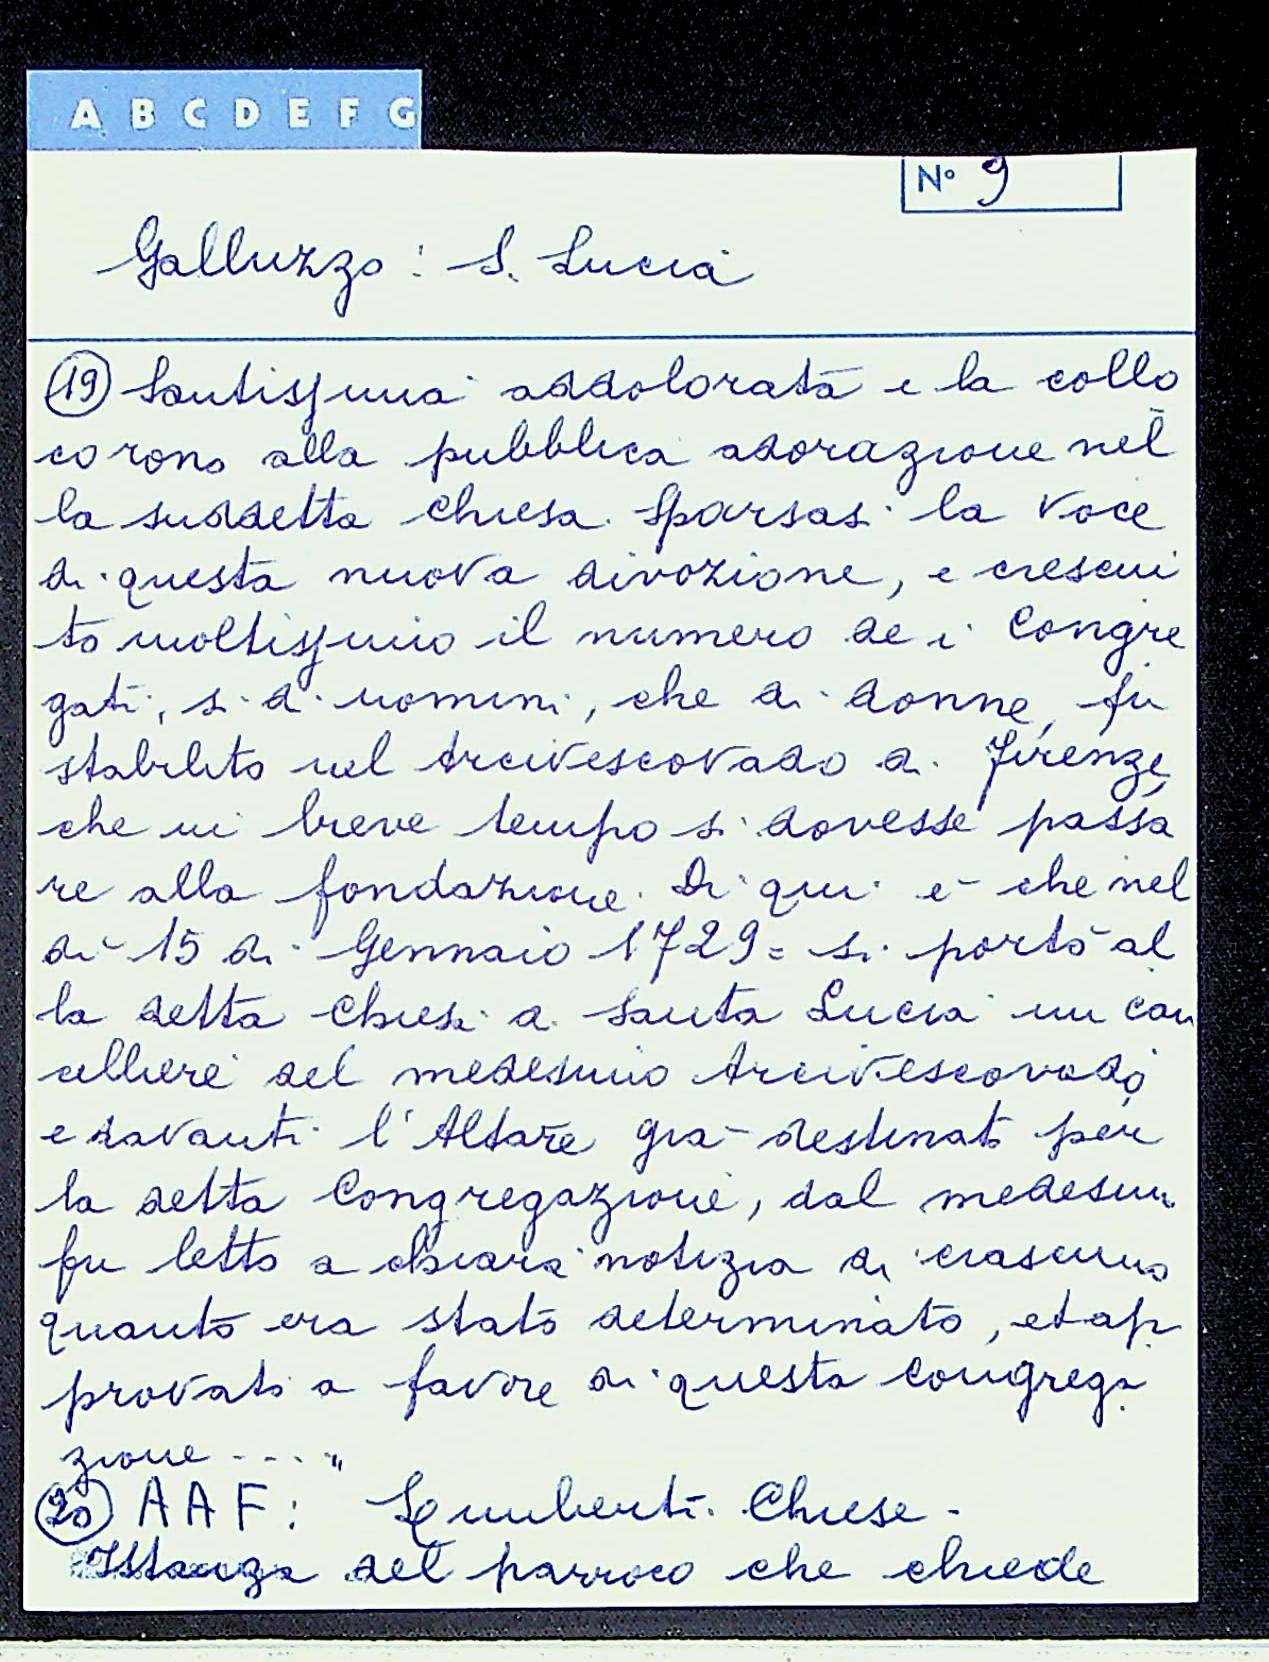 A B C D E F G
N° 9
Galluzzo: S. Lucia
19 Santissima addolorata e la collo
corono alla pubblica adorazione nel
la suddetta chiesa. Sparsasi la voce
di questa nuova divozione, e cresciu
to moltissimo il numero dei Congre
gati, si d'uomini, che di donne, fu
stabilito nel Arcivescovado di Firenze,
che in breve tempo si dovesse passa
re alla fondazione. Di qui è che nel
dì 15 di Gennaio 1729= si portò al
la detta Chiesa di Santa Lucia un can
celliere del medesimo Arcivescovado,
e davanti l'Altare già destinato per
la detta Congregazione, dal medesimo
fu letto a chiara notizia di ciascuno
quanto era stato determinato, et ap
provato a favore di questa congrega
zione ...."
20 AAF: Chiese -
Istanza del parroco che chiede